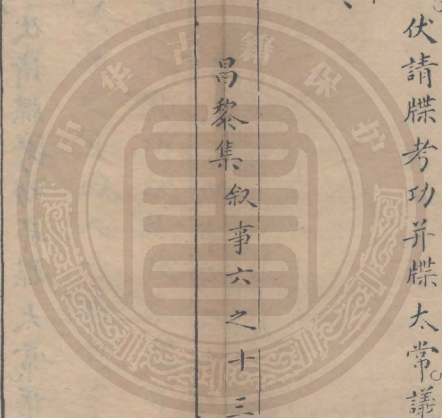 伏請牒考功并牒太常議
昌黎集叙事六之十三
中华古籍保护